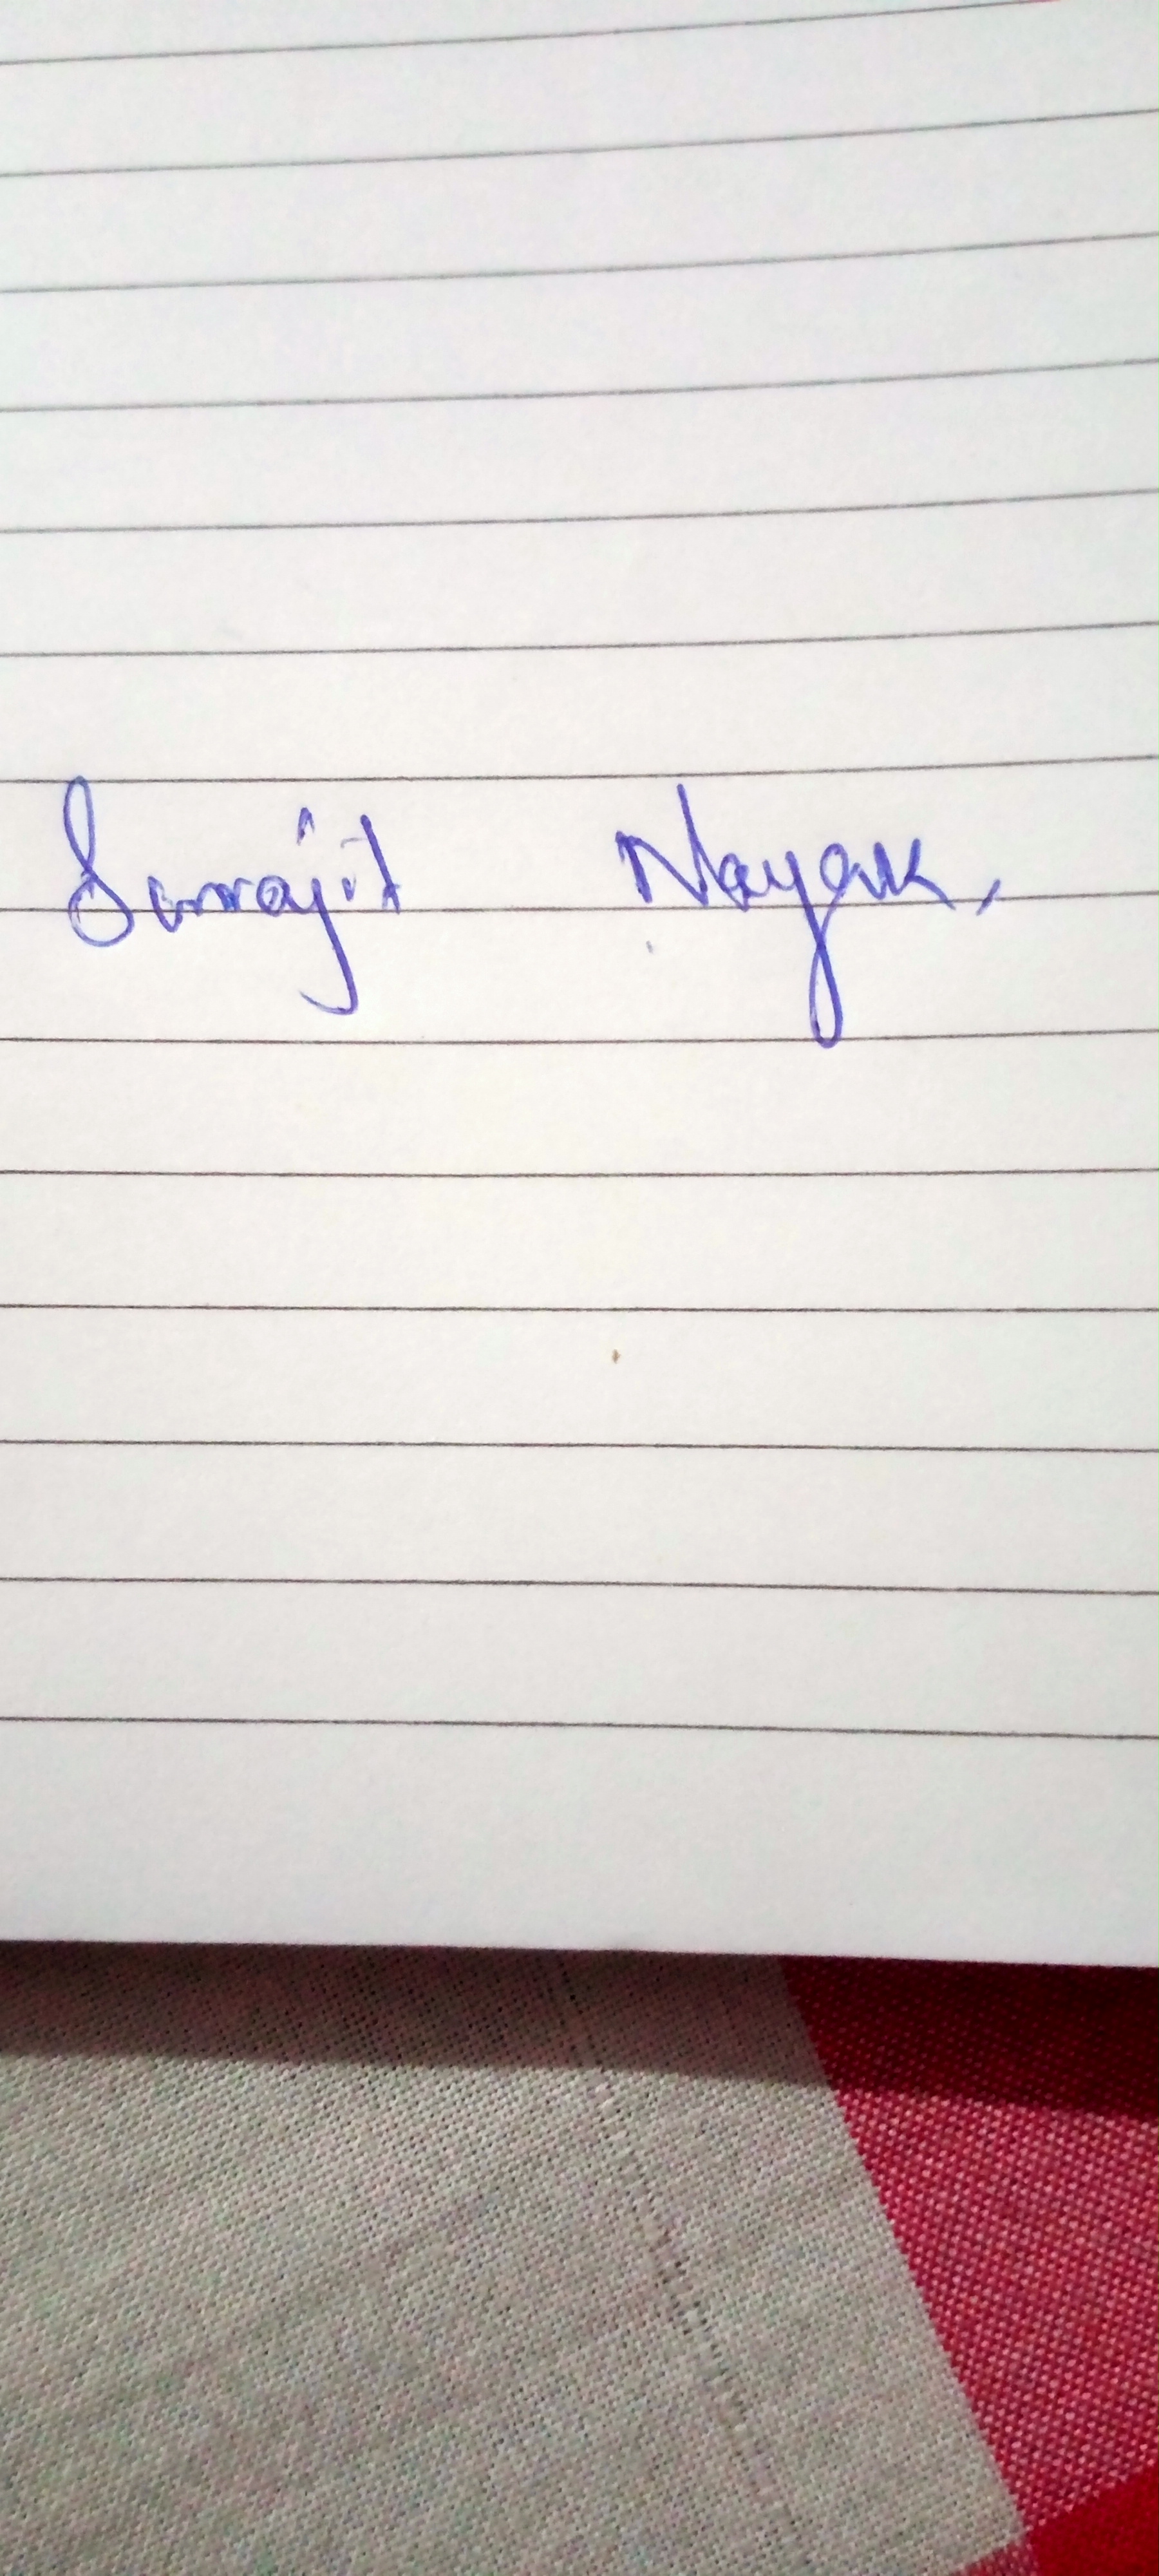 Surajit Nayak,